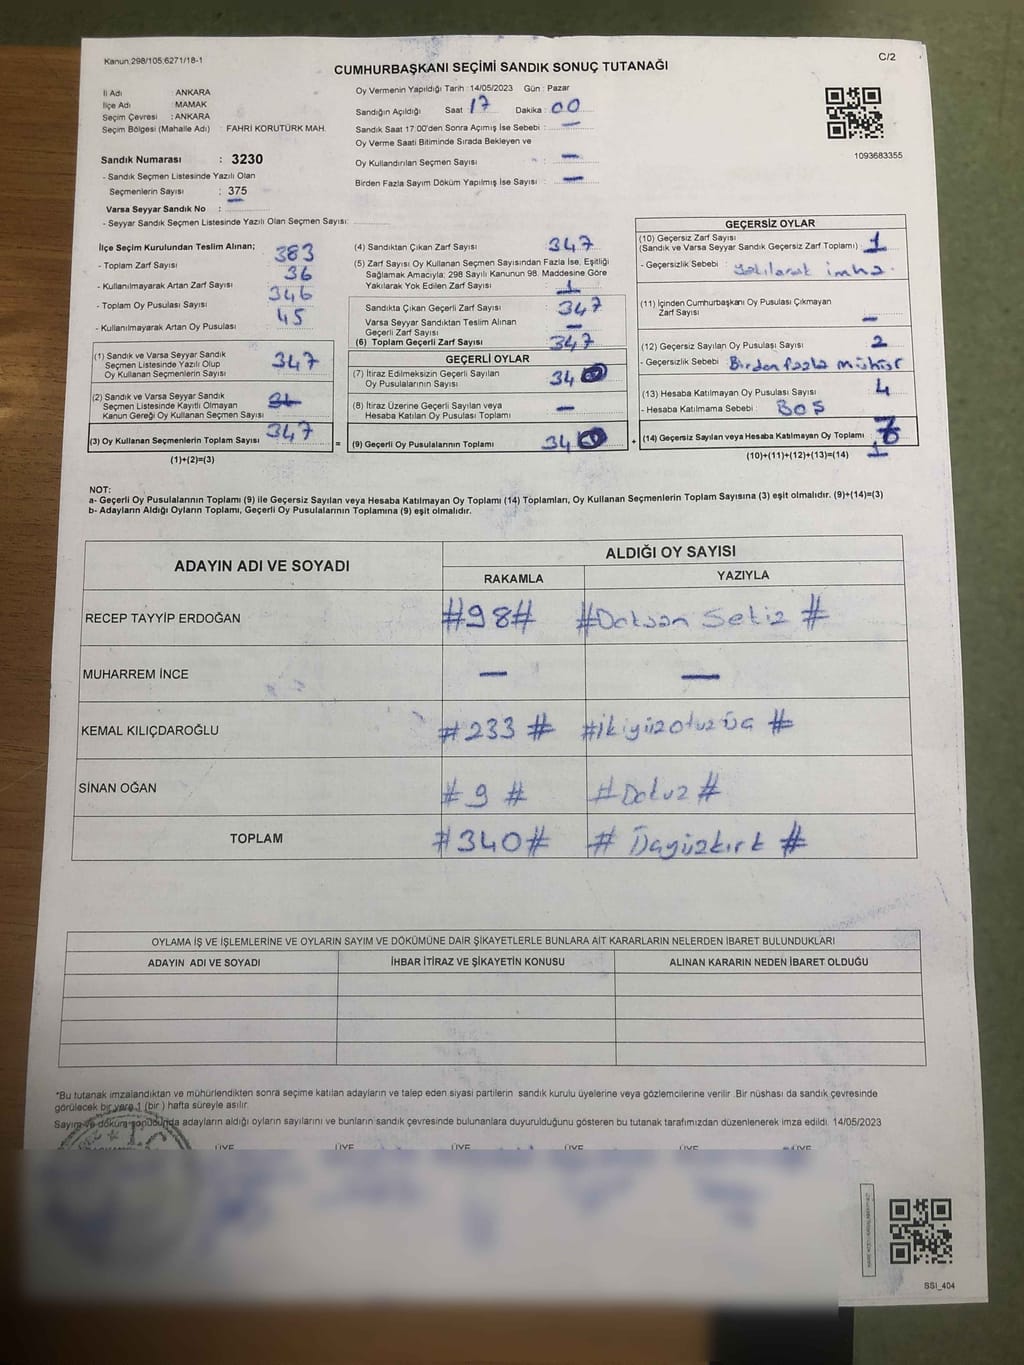 Kanun.298/105.6271/18-1
C/2
CUMHURBAŞKANI SEÇİMİ SANDIK SONUÇ TUTANAĞI
İl Adı : ANKARA
İlçe Adı : MAMAK
Seçim Çevresi : ANKARA
Seçim Bölgesi (Mahalle Adı) : FAHRİ KORUTÜRK MAH.
Sandık Numarası : 3230
- Sandık Seçmen Listesinde Yazılı Olan
Seçmenlerin Sayısı : 375
Varsa Seyyar Sandık No :
- Seyyar Sandık Seçmen Listesinde Yazılı Olan Seçmen Sayısı:
Oy Vermenin Yapıldığı Tarih :14/05/2023 Gün : Pazar
Sandığın Açıldığı Saat 17 Dakika : 00
Sandık Saat 17:00'den Sonra Açımış İse Sebebi : —
Oy Verme Saati Bitiminde Sırada Bekleyen ve
Oy Kullandırılan Seçmen Sayısı : —
Birden Fazla Sayım Döküm Yapılmış İse Sayısı : —
1093683355
İlçe Seçim Kurulundan Teslim Alınan;
- Toplam Zarf Sayısı 383
- Kullanılmayarak Artan Zarf Sayısı 36
- Toplam Oy Pusulası Sayısı 346
- Kullanılmayarak Artan Oy Pusulası 45
(1) Sandık ve Varsa Seyyar Sandık
Seçmen Listesinde Yazılı Olup
Oy Kullanan Seçmenlerin Sayısı 347
(2) Sandık ve Varsa Seyyar Sandık
Seçmen Listesinde Kayıtlı Olmayan
Kanun Gereği Oy Kullanan Seçmen Sayısı
(3) Oy Kullanan Seçmenlerin Toplam Sayısı 347
(1)+(2)=(3)
(4) Sandıktan Çıkan Zarf Sayısı 347
(5) Zarf Sayısı Oy Kullanan Seçmen Sayısından Fazla İse, Eşitliği
Sağlamak Amacıyla; 298 Sayılı Kanunun 98. Maddesine Göre
Yakılarak Yok Edilen Zarf Sayısı 1
Sandıkta Çıkan Geçerli Zarf Sayısı 347
Varsa Seyyar Sandıktan Teslim Alınan
Geçerli Zarf Sayısı —
(6) Toplam Geçerli Zarf Sayısı 347
GEÇERLİ OYLAR
(7) İtiraz Edilmeksizin Geçerli Sayılan
Oy Pusulalarının Sayısı 340
(8) İtiraz Üzerine Geçerli Sayılan veya
Hesaba Katılan Oy Pusulası Toplamı —
= (9) Geçerli Oy Pusulalarının Toplamı 340
GEÇERSİZ OYLAR
(10) Geçersiz Zarf Sayısı
(Sandık ve Varsa Seyyar Sandık Geçersiz Zarf Toplamı) 1
- Geçersizlik Sebebi : yakılarak imha.
(11) İçinden Cumhurbaşkanı Oy Pusulası Çıkmayan
Zarf Sayısı —
(12) Geçersiz Sayılan Oy Pusulaşı Sayısı 2
- Geçersizlik Sebebi Birden fazla mühür
(13) Hesaba Katılmayan Oy Pusulası Sayısı 4
- Hesaba Katılmama Sebebi : BOŞ
+ (14) Geçersiz Sayılan veya Hesaba Katılmayan Oy Toplamı 7
(10)+(11)+(12)+(13)=(14)
NOT:
a- Geçerli Oy Pusulalarının Toplamı (9) ile Geçersiz Sayılan veya Hesaba Katılmayan Oy Toplamı (14) Toplamları, Oy Kullanan Seçmenlerin Toplam Sayısına (3) eşit olmalıdır. (9)+(14)=(3)
b- Adayların Aldığı Oyların Toplamı, Geçerli Oy Pusulalarının Toplamına (9) eşit olmalıdır.
ADAYIN ADI VE SOYADI
ALDIĞI OY SAYISI
RAKAMLA YAZIYLA
RECEP TAYYİP ERDOĞAN #98# #Doksan Sekiz #
MUHARREM İNCE — —
KEMAL KILIÇDAROĞLU #233 # #ikiyüzotuzüç #
SİNAN OĞAN # 9 # #Dokuz #
TOPLAM #340# # Üçyüzkırk #
OYLAMA İŞ VE İŞLEMLERİNE VE OYLARIN SAYIM VE DÖKÜMÜNE DAİR ŞİKAYETLERLE BUNLARA AİT KARARLARIN NELERDEN İBARET BULUNDUKLARI
ADAYIN ADI VE SOYADI İHBAR İTİRAZ VE ŞİKAYETİN KONUSU ALINAN KARARIN NEDEN İBARET OLDUĞU
*Bu tutanak imzalandıktan ve mühürlendikten sonra seçime katılan adayların ve talep eden siyasi partilerin sandık kurulu üyelerine veya gözlemcilerine verilir .Bir nüshası da sandık çevresinde
görülecek bir yere 1 (bir ) hafta süreyle asılır.
Sayım ve döküm sonucunda adayların aldığı oyların sayılarını ve bunların sandık çevresinde bulunanlara duyurulduğunu gösteren bu tutanak tarafımızdan düzenlenerek imza edildi. 14/05/2023
ÜYE ÜYE ÜYE ÜYE ÜYE ÜYE
SSI_404